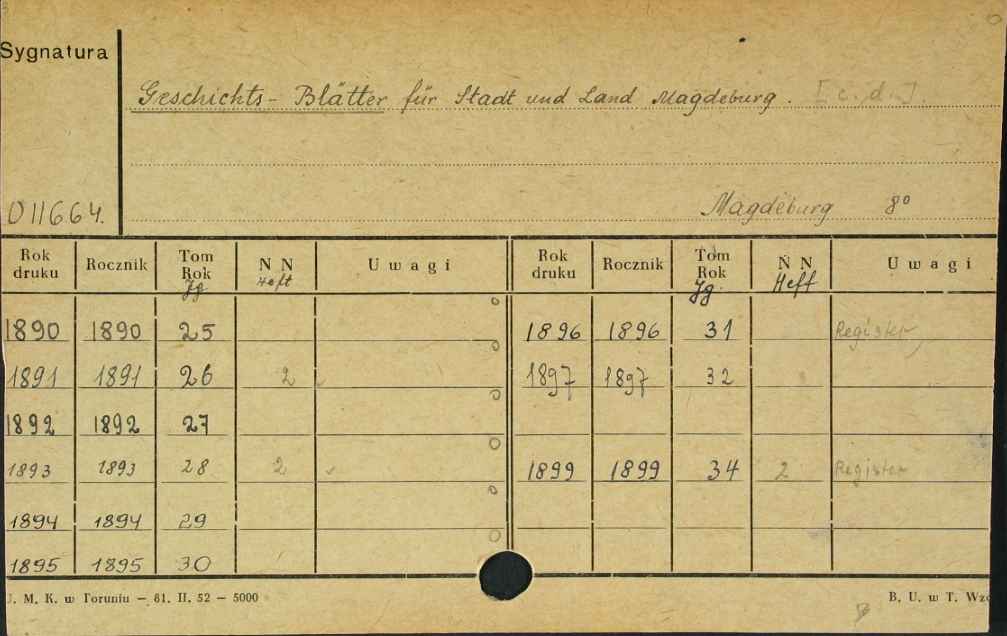 Sygnatura
Geschichts-Blätter für Stadt und Land Magdeburg. [c.d.]
011664.
Magdeburg 8°
Rok druku Rocznik Tom Rok Jg. N N Heft Uwagi Rok druku Rocznik Tom Rok Jg. N N Heft Uwagi
1890 1890 25 1896 1896 31 Register
1891 1891 26 2 1897 1897 32
1892 1892 27
1893 1893 28 2 1899 1899 34 2 Register
1894 1894 29
1895 1895 30
J. M. K. w Toruniu — 61. II. 52 — 5000 B. U. w T.